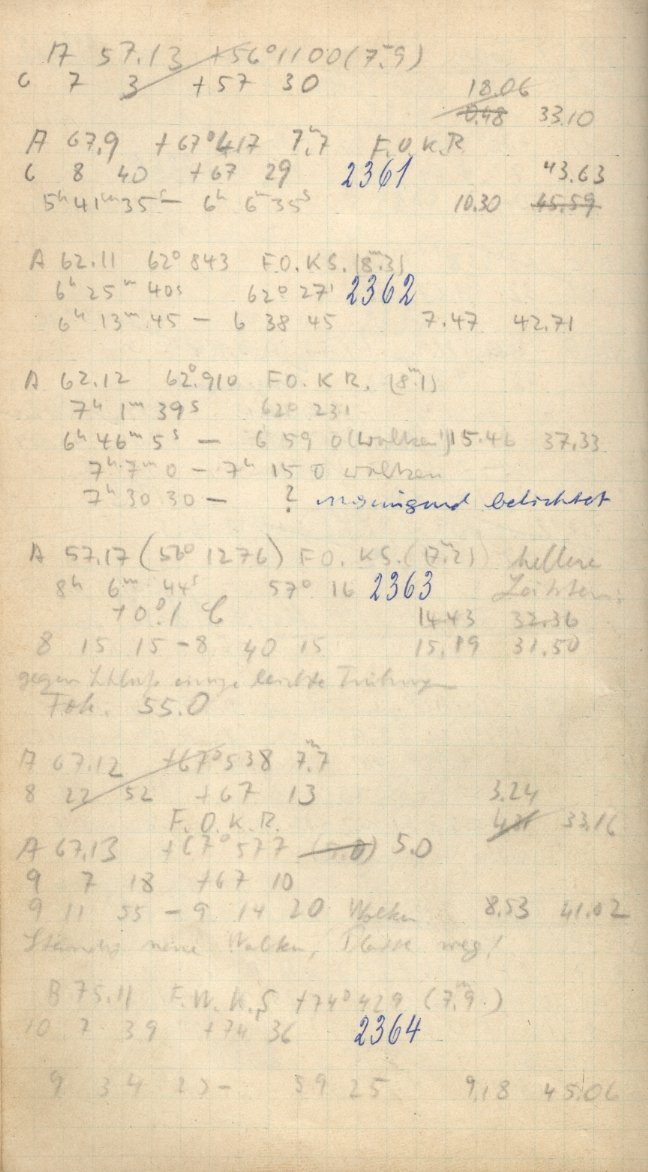 A 57.13 +56° 1100 (7.9)
6 7 3 +57 30
18.06
0.48 33.10
A 67.9 +67° 417 7.ᵐ7 F.O.K.R
6 8 40 +67 29 2361 43.63
5ʰ 41ᵐ 35ˢ – 6ʰ 6ᵐ 35ˢ 10.30 45.59
A 62.11 62° 843 F.O.KS. (8.ᵐ3)
6ʰ 25ᵐ 40s 62° 27' 2362
6ʰ 13ᵐ 45 – 6 38 45 7.47 42.71
A 62.12 62° 910 F.O.K R. (8.ᵐ1)
7ʰ 1ᵐ 39s 62° 23'
6ʰ 46ᵐ 5ˢ – 6 59 0 (Wolken) 15.46 37.33
7ʰ 7ᵐ 0 – 7ʰ 15 0 Wolken
7ʰ 30 30 – ? belichtet
A 57.17 (56° 1276) F.O. KS. (7.ᵐ2) hellere
8ʰ 6ᵐ 44ˢ 57° 16 2363
+0°.1 C 14.43 32.36
8 15 15 – 8 40 15 15.19 31.50
gegen Schluß einige leichte Trübungen
Fok. 55.0
A 67.12 +67° 538 7.ᵐ7
8 22 52 +67 13 3.24
F.O.K.R. 33.16
A 67.13 +67° 577 5.0
9 7 18 +67 10
9 11 55 – 9 14 20 Wolken 8.53 41.02
neue Wolken, Platte weg!
B 75.11 F.W.K.S +74° 429 (7.ᵐ9)
10 7 39 +74 36 2364
9 34 25 – 59 25 9.18 45.06